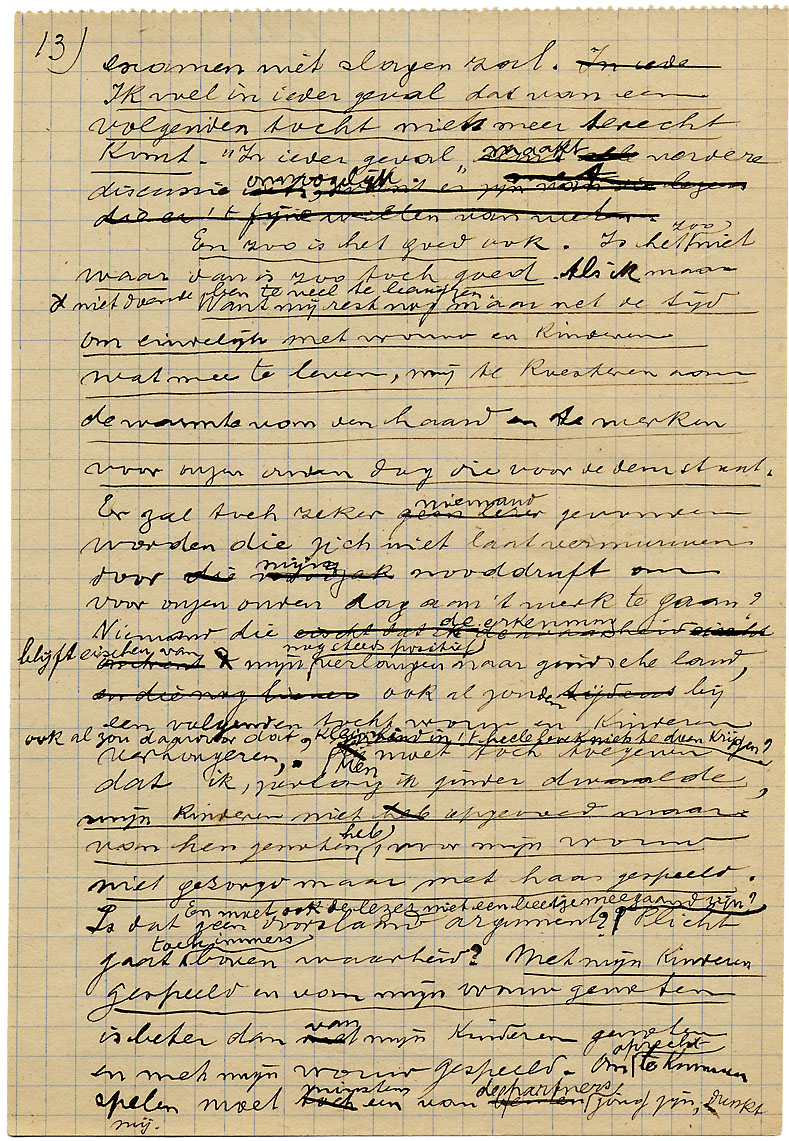 13)
examen niet slagen zal. In iede
Ik wil in ieder geval dat van een
volgenden tocht niets meer terecht
komt. "In ieder geval" maakt verdere
discussie onmogelijk zijn van die
die er 't fijne willen van weten.
En zoo is het goed ook. Is het niet zoo,
waar dan is zoo toch goed. Als ik maar
niet doende ben te veel te
Want mij rest nog maar net de tijd
om eindelijk met vrouw en kinderen
wat mee te leven, mij te koesteren aan
de warmte van den haard en te werken
voor onzen ouden dag die voor de deur staat.
Er zal toch zeker geen lezer niemand gevonden
worden die zich niet laat vermurwen
door die mijn noodzaak nooddruft om
voor onzen ouden dag aan 't werk te gaan?
Niemand die eischt dat ik de waarheid de erkenning
blijft eischen van mijn nog steeds positief verlangen naar gindsche land,
en die nog liever ook al zouden tijdens bij
een volgenden tocht vrouw en kinderen
ook al zou daardoor dat kleinood in 't heele boek niet te doen krijgen?
verhongeren, Men moet toch toegeven
dat ik, zoolang ik ginder dwaalde,
mijn kinderen niet heb opgevoed maar
van hen genoten heb, voor mijn vrouw
niet gezorgd maar met haar gespeeld.
En moet ook de lezer niet een beetje meegaand zijn?
Is dat geen doorslaand argument? Plicht
gaat toch immers boven waarheid? Met mijn kinderen
gespeeld en van mijn vrouw genoten
is beter dan met van mijn kinderen genoten
en met mijn vrouw gespeeld. Om oprecht te kunnen
spelen moet toch minstens een van beiden de partners jong zijn, dunkt
mij.